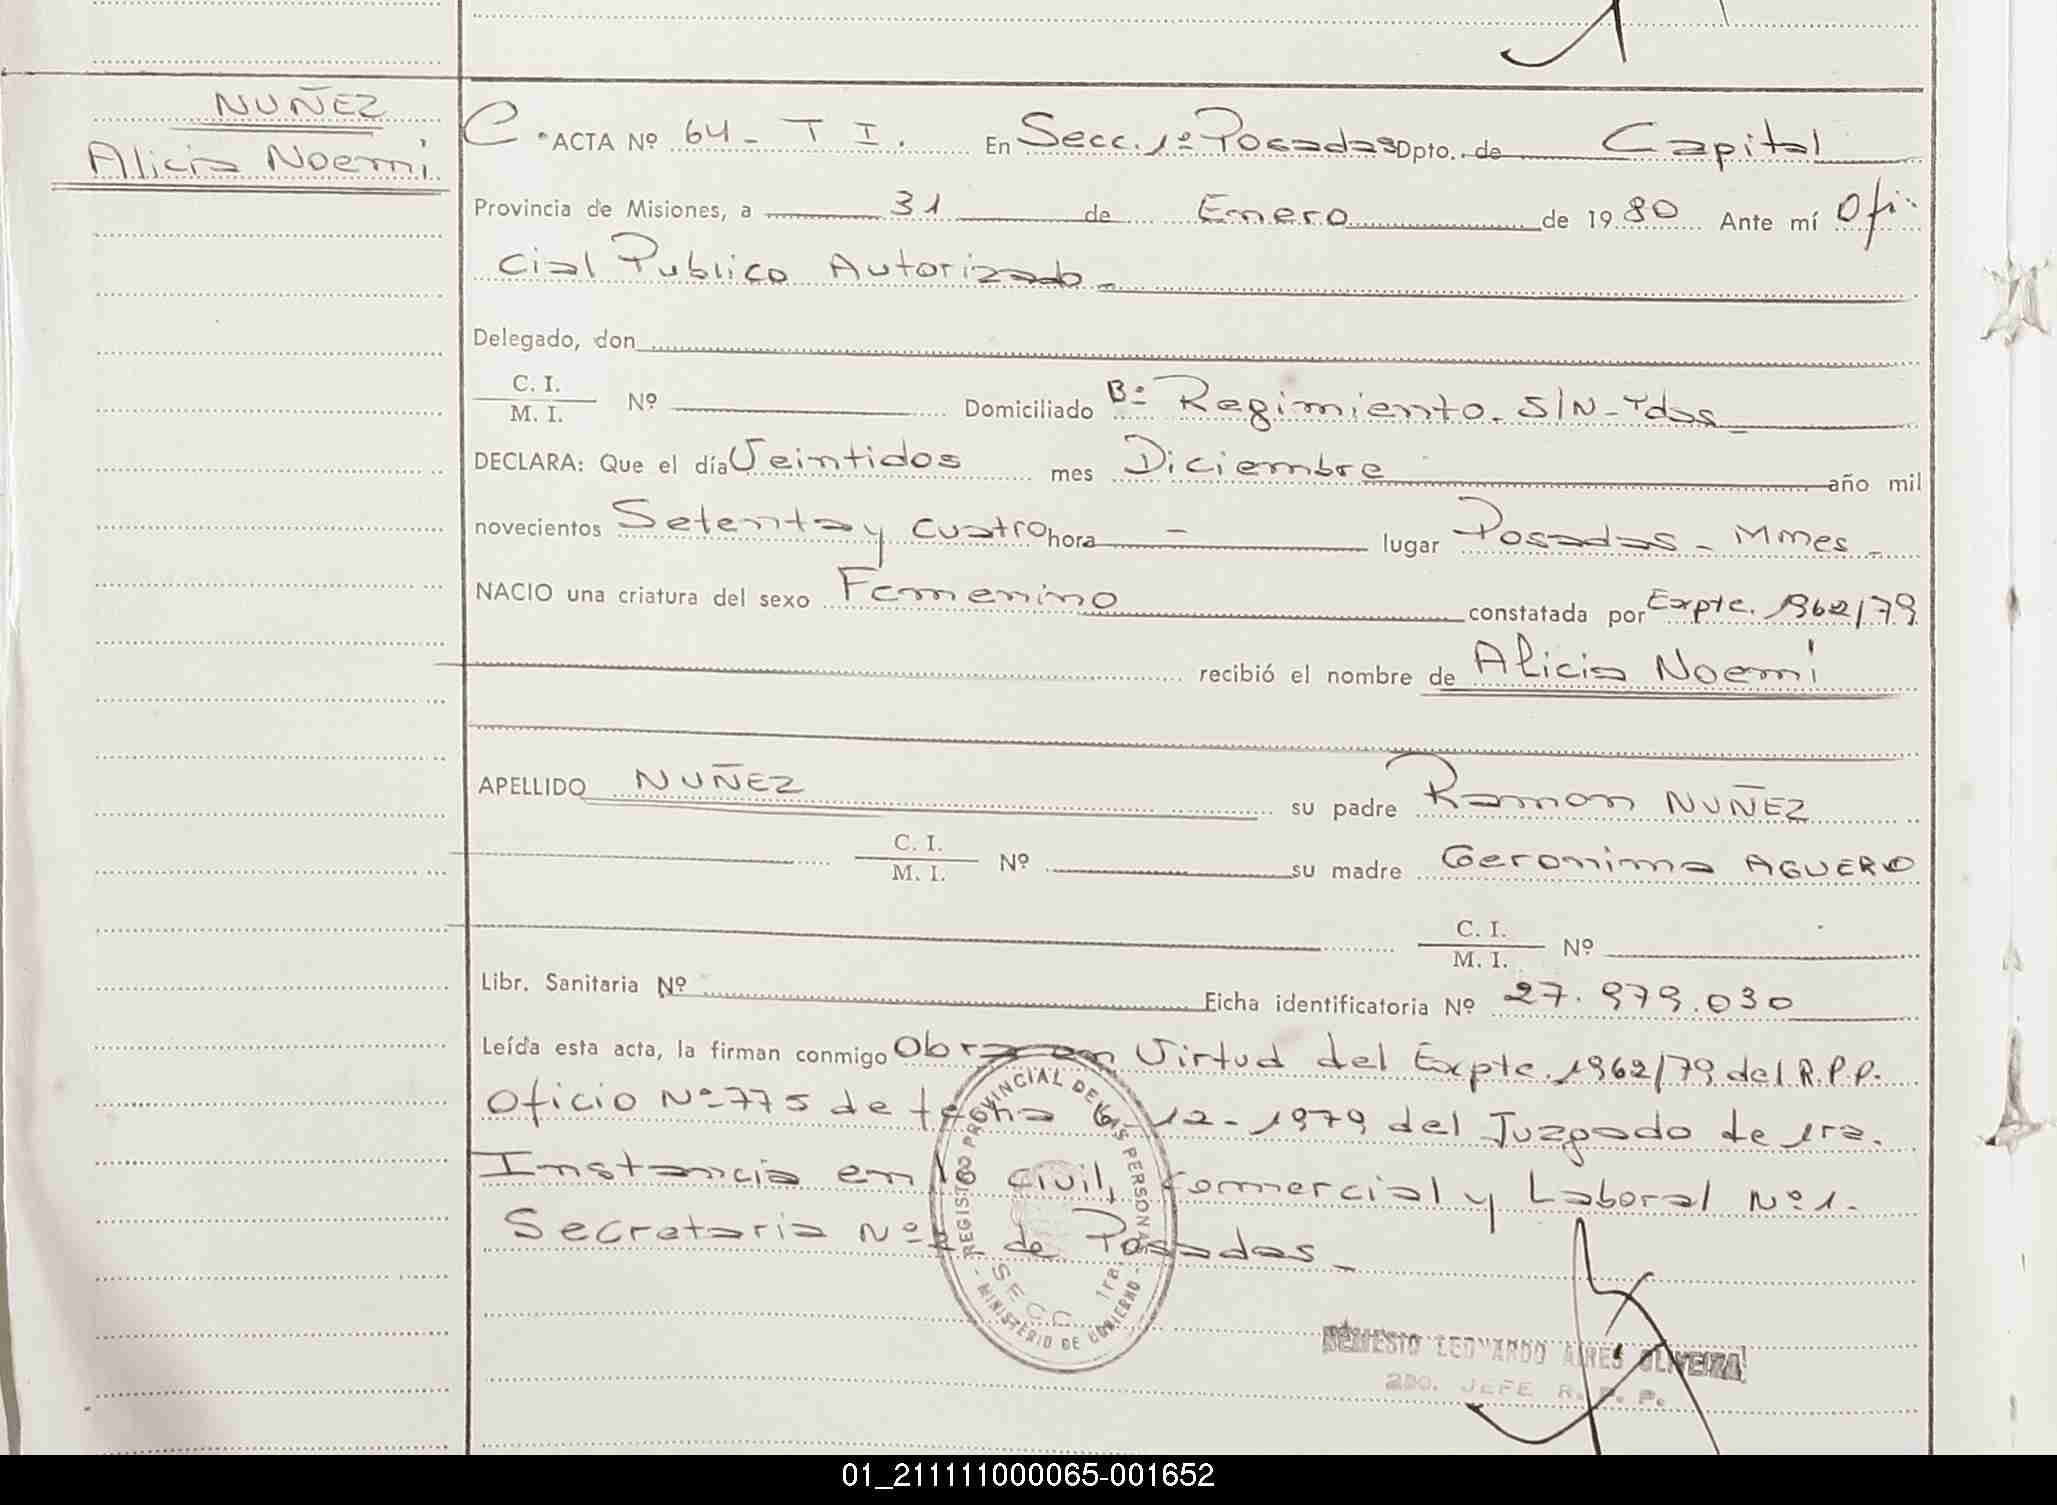 NUÑEZ
Alicia Noemi
C. ACTA Nº 64 - T I. En Secc. 1º Posadas Dpto. de Capital
Provincia de Misiones, a 31 de Enero de 1980 Ante mí Ofi-
cial Publico Autorizado -
Delegado, don
C. I.
M. I. Nº Domiciliado Bº Regimiento. S/N - Pdas -
DECLARA: Que el día Veintidos mes Diciembre año mil
novecientos Setenta y cuatro hora - lugar Posadas - Mnes -
NACIO una criatura del sexo Femenino constatada por Expte. 1962/79
recibió el nombre de Alicia Noemi
APELLIDO NUÑEZ su padre Ramon NUÑEZ
C. I.
M. I. Nº su madre Geronima AGUERO
C. I.
M. I. Nº
Libr. Sanitaria Nº Ficha identificatoria Nº 27.979.030
Leída esta acta, la firman conmigo Obra en Virtud del Expte. 1962/79 del R.P.P.
Oficio Nº 775 de fecha 6-12-1979 del Juzgado de 1ra.
Instancia en lo Civil, Comercial y Laboral Nº 1.
Secretaria Nº de Posadas -
REGISTRO PROVINCIAL DE LAS PERSONAS
SECC. 1ra.
- MINISTERIO DE GOBIERNO -
NEMESIO LEONARDO AIRES OLIVEIRA
2DO. JEFE R. P. P.
01_211111000065-001652